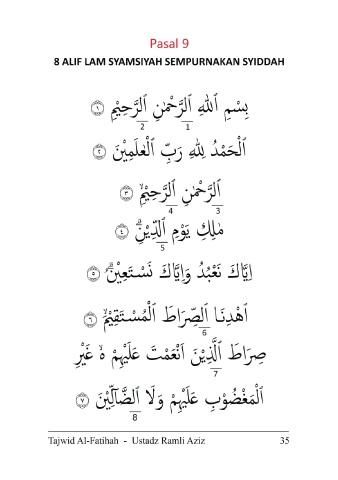 Pasal 9
8 ALIF LAM SYAMSIYAH SEMPURNAKAN SYIDDAH
بِسْمِ ٱللَّهِ ٱلرَّحْمَٰنِ ٱلرَّحِيْمِ ۝١
2 1
ٱلْحَمْدُ لِلَّهِ رَبِّ ٱلْعَٰلَمِيْنَ ۝٢
ٱلرَّحْمَٰنِ ٱلرَّحِيْمِۙ ۝٣
4 3
مَٰلِكِ يَوْمِ ٱلدِّيْنِۗ ۝٤
5
اِيَّاكَ نَعْبُدُ وَاِيَّاكَ نَسْتَعِيْنُۗ ۝٥
اِهْدِنَا ٱلصِّرَاطَ ٱلْمُسْتَقِيْمَۙ ۝٦
6
صِرَاطَ ٱلَّذِيْنَ اَنْعَمْتَ عَلَيْهِمْ ەۙ غَيْرِ
7
ٱلْمَغْضُوْبِ عَلَيْهِمْ وَلَا ٱلضَّآلِّيْنَ ۝٧
8
Tajwid Al-Fatihah - Ustadz Ramli Aziz 35